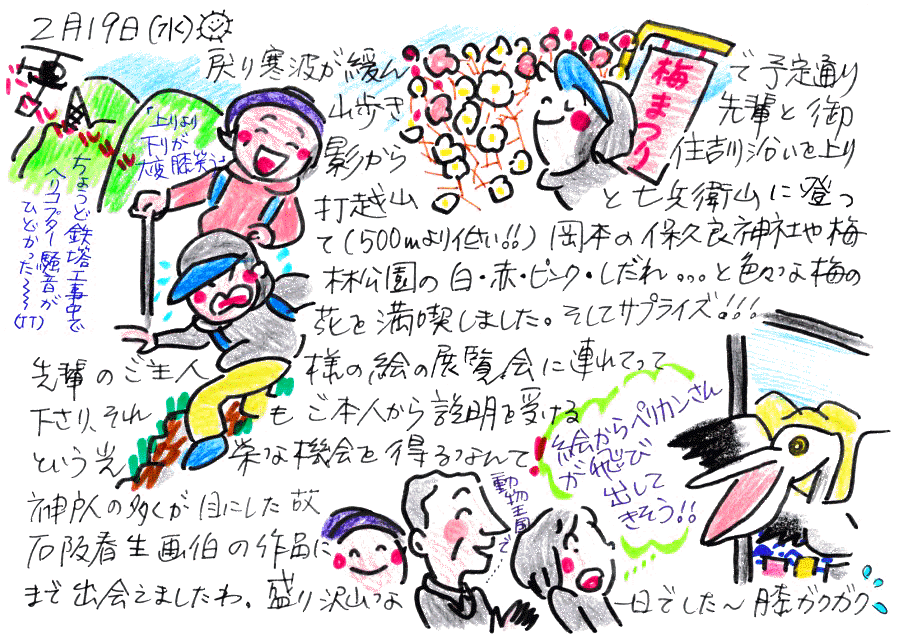 2月19日(水)
戻り寒波が緩んで予定通り
山歩き 先輩と御
影から 住吉川沿いを上り
打越山と七兵衛山に登っ
て(500mより低い!!)岡本の保久良神社や梅
林公園の白・赤・ピンク・しだれ。。。と色々な梅の
花を満喫しました。そしてサプライズ!!!
先輩のご主人様の絵の展覧会に連れてって
下さり、それもご本人から説明を受ける
という光栄な機会を得るなんて
神戸人の多くが目にした故
石阪春生画伯の作品に
まで出会えましたわ。盛り沢山な一日でした〜膝ガクガク
梅まつり
「上りより
下りが
大変膝笑」
ちょうど鉄塔工事中で
ヘリコプター騒音が
ひどかった〜〜〜
(TT)
絵からペリカンさん
が飛び
出して
きそう!!
動物王国
で